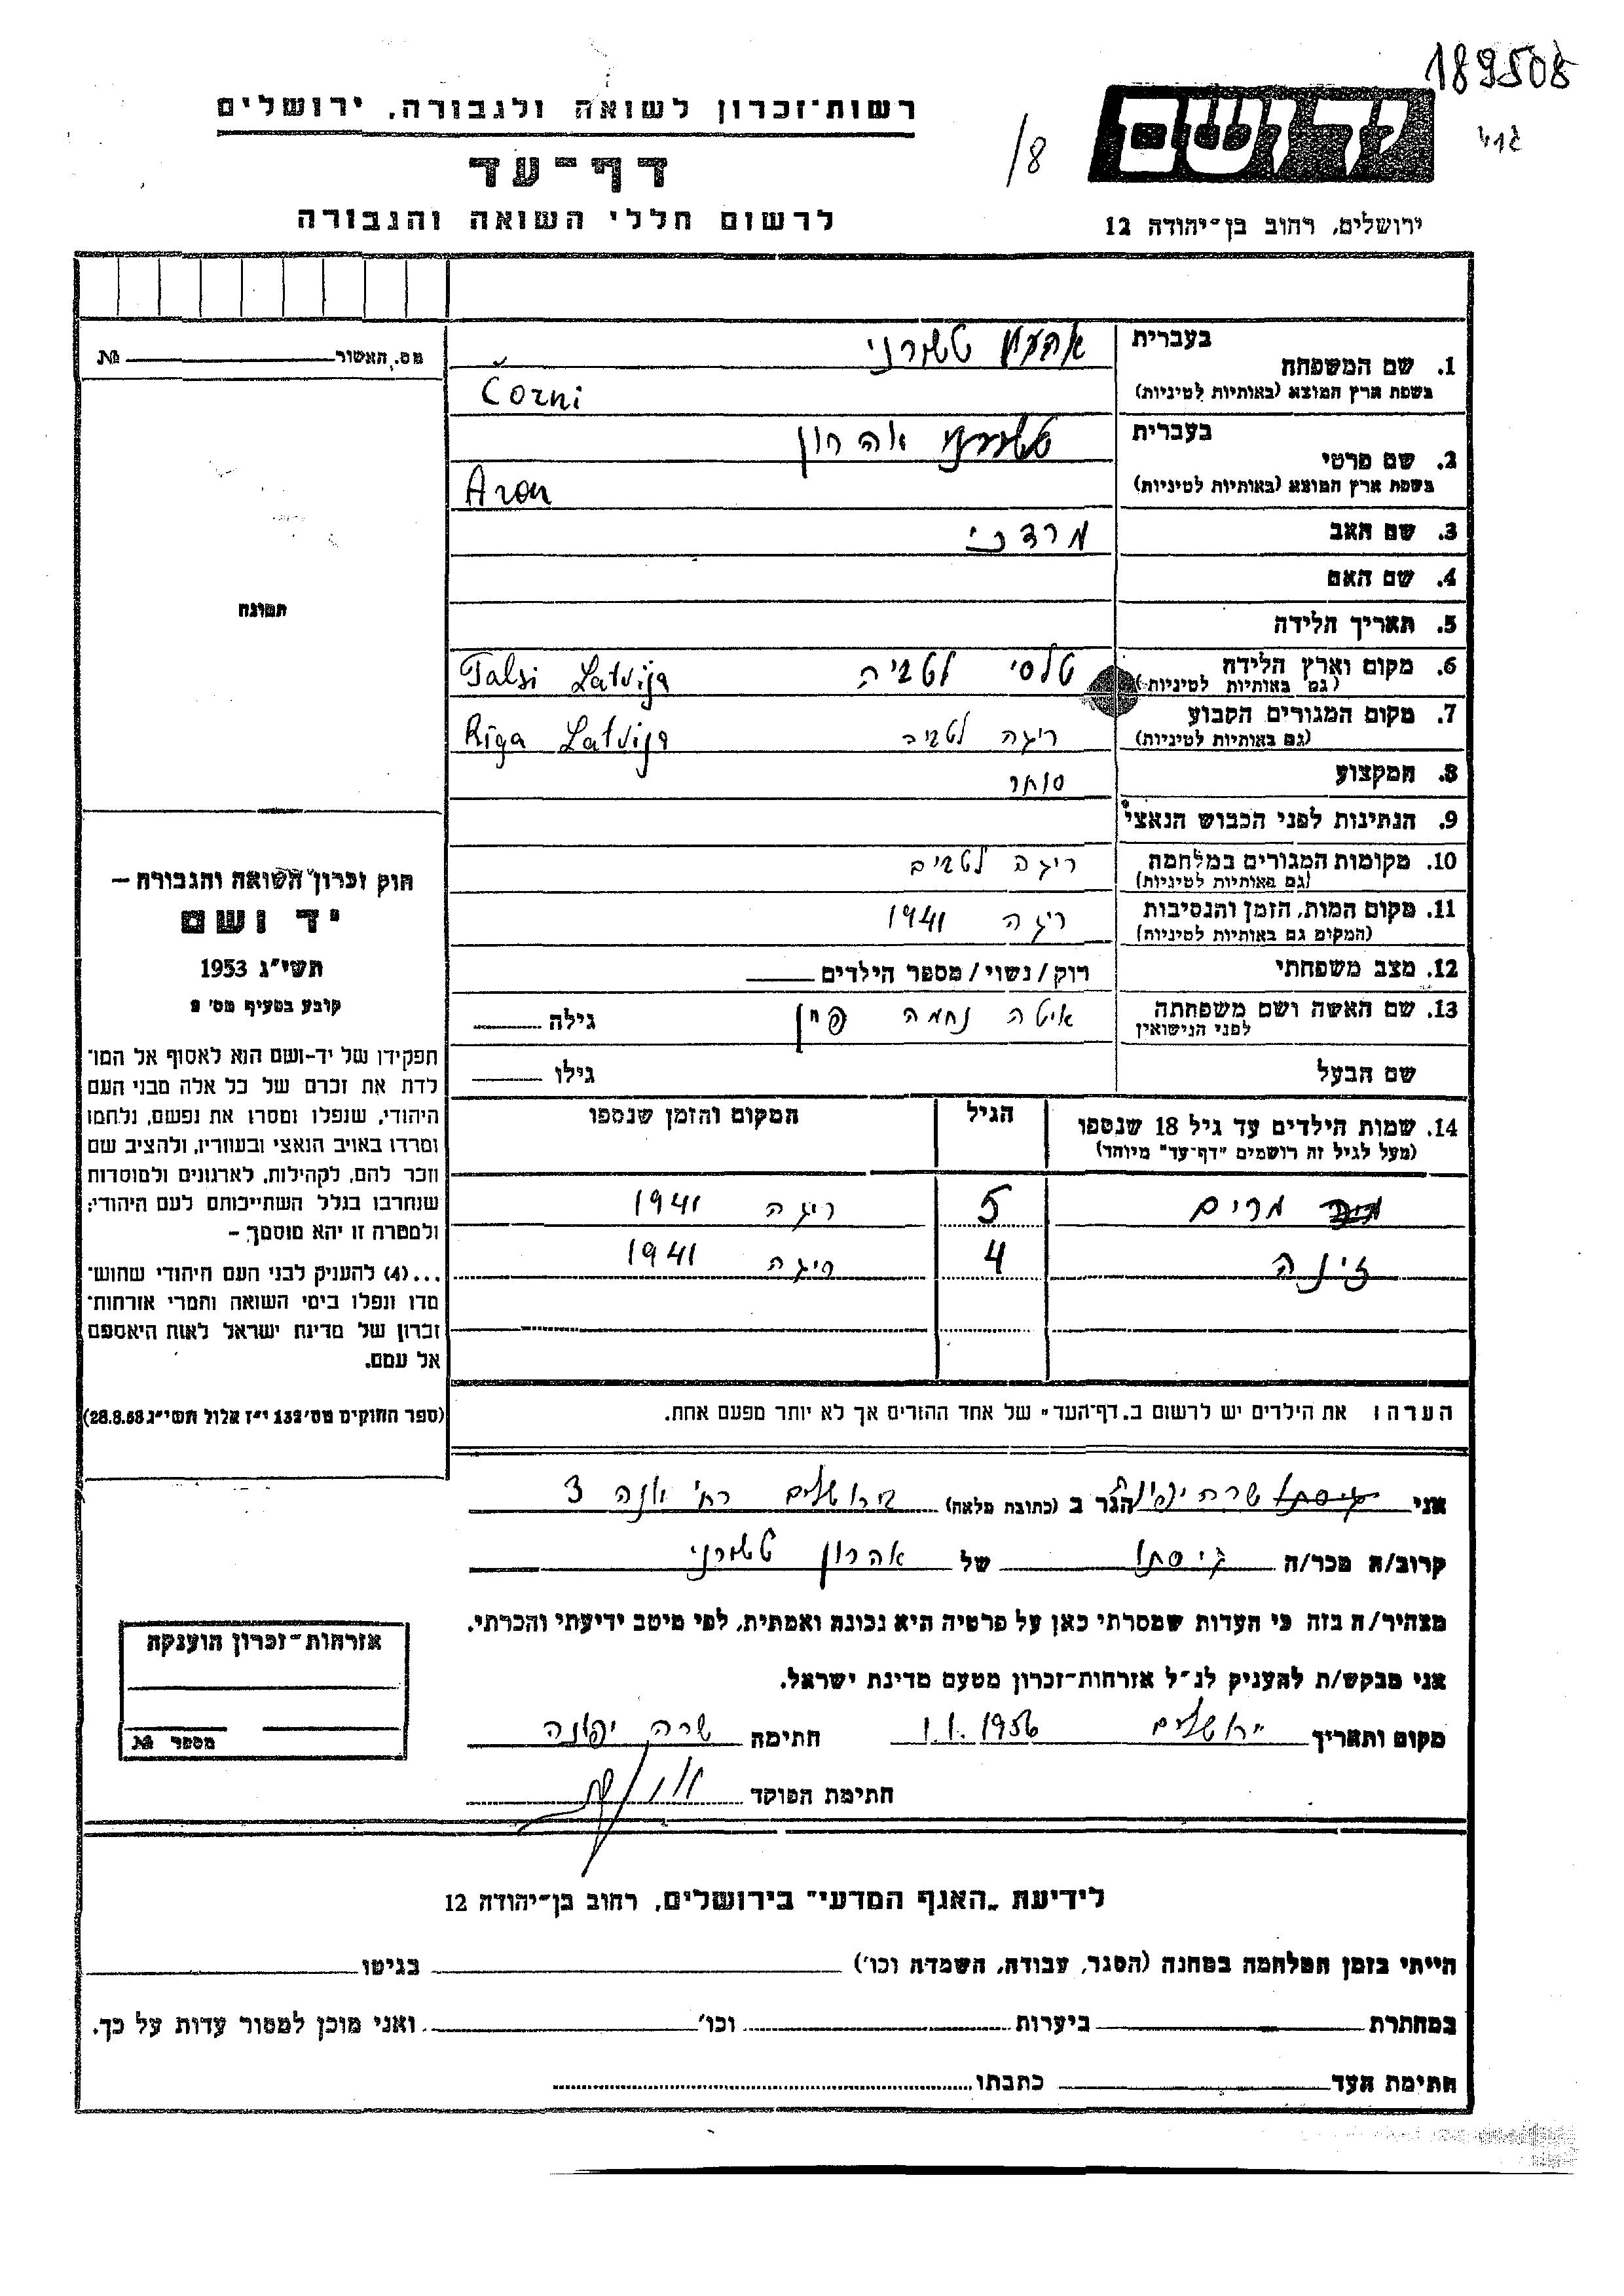 189508
רשות־זכרון לשואה ולגבורה, ירושלים
יד ושם
דף־עד
/8
לרשום חללי השואה והגבורה
ירושלים, רחוב בן־יהודה 12
מס. האשור № ______
1. שם המשפחה
בעברית טשורני
בשפת ארץ המוצא (באותיות לטיניות)
Čorni
2. שם פרטי
בעברית אהרון
בשפת ארץ המוצא (באותיות לטיניות)
Aron
3. שם האב מרדכי
4. שם האם
5. תאריך הלידה
6. מקום וארץ הלידה טלסי לטביה Talsi Latvija
(גם באותיות לטיניות)
7. מקום המגורים הקבוע ריגה לטביה Rīga Latvija
(גם באותיות לטיניות)
8. המקצוע סוחר
9. הנתינות לפני הכבוש הנאצי
10. מקומות המגורים במלחמה ריגה לטביה
(גם באותיות לטיניות)
11. מקום המות, הזמן והנסיבות ריגה 1941
(המקום גם באותיות לטיניות)
12. מצב משפחתי רוק/נשוי/מספר הילדים ______
13. שם האשה ושם משפחתה איטה נחמה פיין גילה ______
לפני הנישואין
שם הבעל גילו ______
14. שמות הילדים עד גיל 18 שנספו הגיל המקום והזמן שנספו
(מעל לגיל זה רושמים "דף־עד" מיוחד)
מרים 5 ריגה 1941
זינה 4 ריגה 1941
הערה: את הילדים יש לרשום ב„דף־העד" של אחד ההורים אך לא יותר מפעם אחת.
תמונה
חוק זכרון השואה והגבורה —
יד ושם
תשי"ג 1953
קובע בסעיף מס' 2
תפקידו של יד-ושם הוא לאסוף אל המו־
לדת את זכרם של כל אלה מבני העם
היהודי, שנפלו ומסרו את נפשם, נלחמו
ומרדו באויב הנאצי ובעוזריו, ולהציב שם
וזכר להם, לקהילות, לארגונים ולמוסדות
שנחרבו בגלל השתייכותם לעם היהודי;
ולמטרה זו יהא מוסמך —
...(4) להעניק לבני העם היהודי שהוש־
מדו ונפלו בימי השואה והמרי אזרחות־
זכרון של מדינת ישראל לאות היאספם
אל עמם.
(ספר החוקים מס' 132 י"ז אלול תשי"ג 28.8.53)
אני שרה הגר ב (כתובת מלאה) ירושלים רח' יונה 3
קרוב/ה מכר/ה גיסתו של אהרון טשורני
מצהיר/ה בזה כי העדות שמסרתי כאן על פרטיה היא נכונה ואמתית, לפי מיטב ידיעתי והכרתי.
אני מבקש/ת להעניק לנ"ל אזרחות־זכרון מטעם מדינת ישראל.
מקום ותאריך ירושלים 1.1.1956 חתימה שרה
חתימת הפוקד
אזרחות־זכרון הוענקה
מספר №
לידיעת „האגף המדעי" בירושלים, רחוב בן־יהודה 12
הייתי בזמן המלחמה במחנה (הסגר, עבודה, השמדה וכו') ______ בגיטו ______
במחתרת ______ ביערות ______ וכו' ______ ואני מוכן למסור עדות על כך.
חתימת העד ______ כתבתו ______